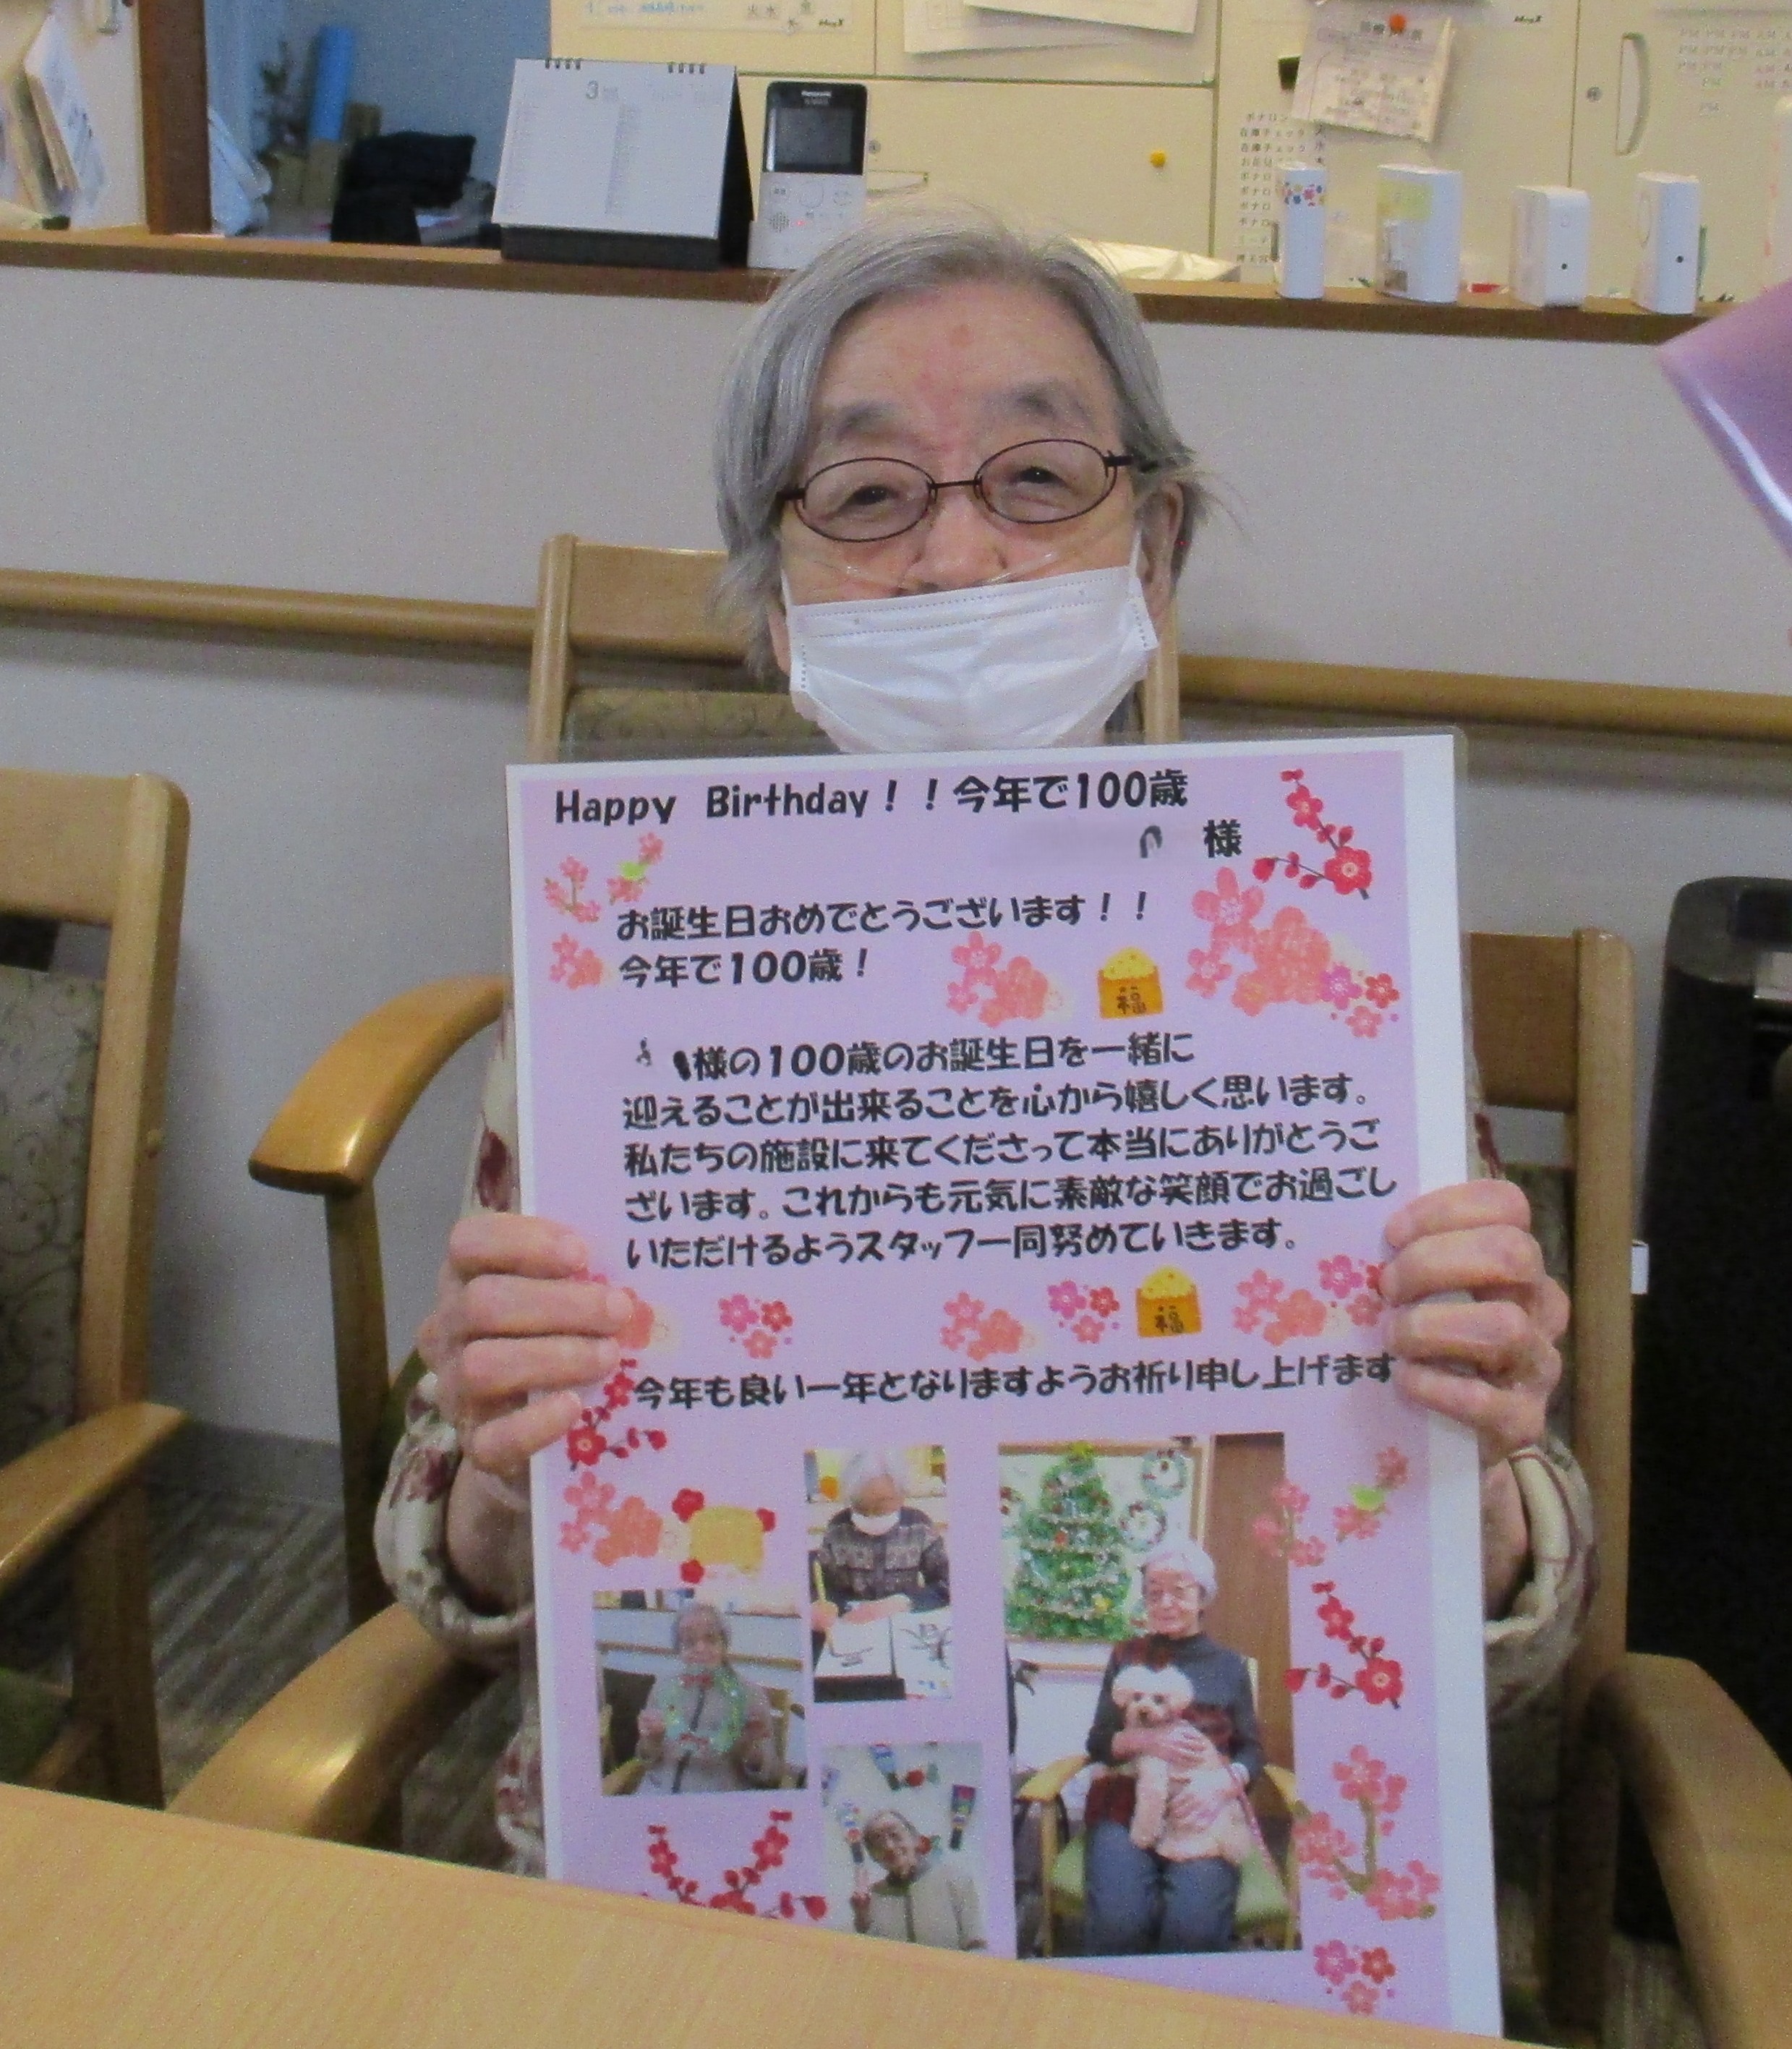 3
Panasonic
Happy Birthday！！今年で100歳
様
お誕生日おめでとうございます！！
今年で100歳！
福
様の100歳のお誕生日を一緒に
迎えることが出来ることを心から嬉しく思います。
私たちの施設に来てくださって本当にありがとうご
ざいます。これからも元気に素敵な笑顔でお過ごし
いただけるようスタッフ一同努めていきます。
福
今年も良い一年となりますようお祈り申し上げます
春